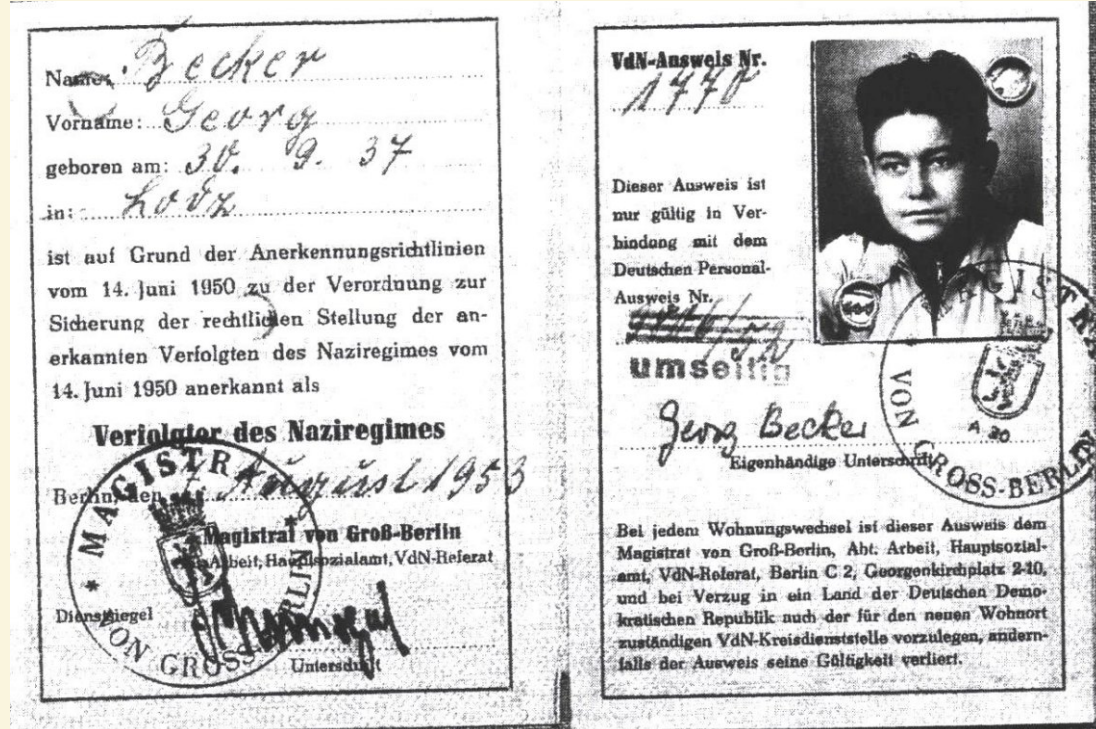 Name: Becker
Vorname: Georg
geboren am: 30. 9. 37
in: Lodz
ist auf Grund der Anerkennungsrichtlinien
vom 14. Juni 1950 zu der Verordnung zur
Sicherung der rechtlichen Stellung der an-
erkannten Verfolgten des Naziregimes vom
14. Juni 1950 anerkannt als
Verfolgter des Naziregimes
Berlin, den 7. August 1953
Magistrat von Groß-Berlin
Arbeit, Hauptsozialamt, VdN-Referat
Dienstsiegel
Unterschrift
MAGISTRA
VON GROSS-BERLIN
VdN-Ausweis Nr.
1770
Dieser Ausweis ist
nur gültig in Ver-
bindung mit dem
Deutschen Personal-
Ausweis Nr.
umseitig
Georg Becker
Eigenhändige Unterschrift
MAGISTR
VON GROSS-BERLIN
A 20
Bei jedem Wohnungswechsel ist dieser Ausweis dem
Magistrat von Groß-Berlin, Abt. Arbeit, Hauptsozial-
amt, VdN-Referat, Berlin C 2, Georgenkirchplatz 2-10,
und bei Verzug in ein Land der Deutschen Demo-
kratischen Republik auch der für den neuen Wohnort
zuständigen VdN-Kreisdienststelle vorzulegen, andern-
falls der Ausweis seine Gültigkeit verliert.